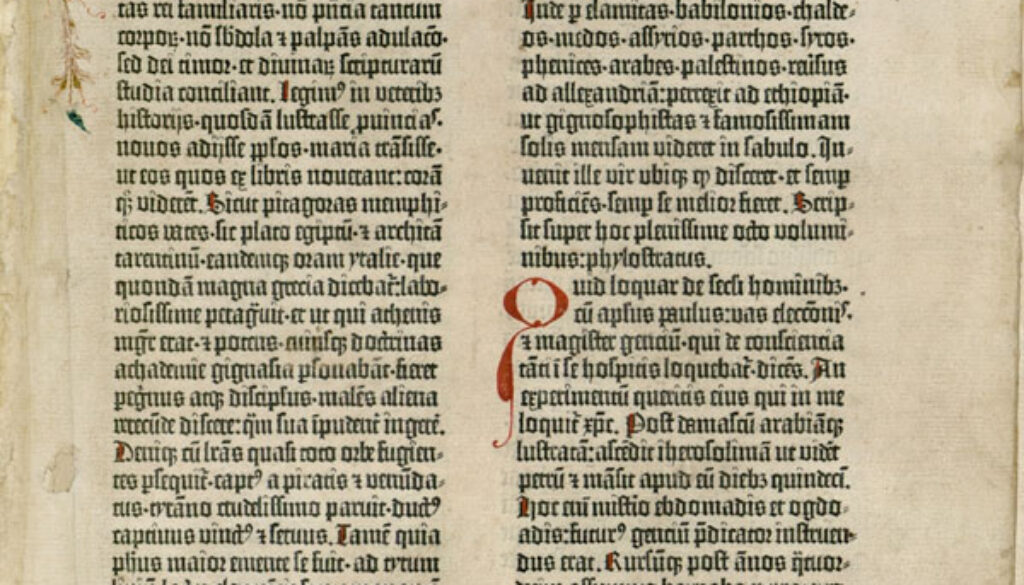 tas rei familiaris· nō p̄ntia tantum
corporꝝ· nō sbdola ⁊ palpās adulacō·
sed dei timor· et diuinaꝝ scripturarū
studia conciliant. Legim⁹ in veterib⁊
historijs· quosdā lustrasse ꝓuincias·
nouos adijsse pp̄los· maria trāsisse·
ut eos quos ex libris nouerant: corā
qꝫ viderēt. Sicut pitagoras memphi-
ticos vates· sic plato egiptū· ⁊ architā
tarentinū· eandemqꝫ oram ytalie· que
quondā magna grecia dicebat̄: labo-
riosissime peragͣuit· et ut qui athenis
mgr̄ erat· ⁊ potens· cuiusqꝫ doctrinas
achademie gignasia ꝑsonabāt· fieret
peg̊nus atqꝫ discipl̄us· malēs aliena
verecūde discere: qͣ̄ sua īpudent̄ ingerē.
Deniqꝫ cū lr̄as quasi toto orbe fugien-
tes ꝑsequit̄· capt⁹ a piratis ⁊ venūda-
tus· tyrāno crudelissimo paruit· duct⁹
captiuus vinct⁹ ⁊ seruus. Tamē quia
ph̄us maior emente se fuit· ad tytum
Inde ꝑ elamitas· babilonios· chalde-
os· medos· assyrios· parthos· syros·
phenices· arabes· palestinos· reūsus
ad allexandriā: perrexit ad ethiopiā·
ut gignosophistas ⁊ famosissimam
solis mensam videret in sabulo. In-
uenit ille vir vbiqꝫ qͦ disceret· et semꝑ
proficiēs· semꝑ se melior fieret. Scrip-
sit super hoc plenissime octo volumi-
nibus: phylostratus.
Quid loquar de secli hominib⁊·
cū apl̄us paulus: vas electōnis·
⁊ magister gentiū· qui de consciencia
tāti ī se hospitis loquebat̄· dicēs. An
experimentū queritis eius qui in me
loquit̄ xp̄c. Post damascū arabiāqꝫ
lustratā: ascēdit iherosolimā ut vidēt
petrū ⁊ māsit apud eū diebꝫ quindecī.
Hoc eni misterio ebdomadis et ogdo-
adis: futur⁹ gentiū p̄dicator instruen-
dus erat. Rursūqꝫ post ānos qͣtuor-